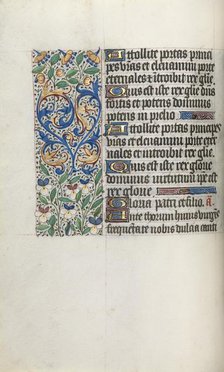 Attollite portas princi
pes vras et eleuamini porte
eternales et introibit rex glie.
Quis est iste rex glie dns
fortis et potens dominus
potens in prelio
Attollite portas principes
vras et eleuamini porte eter
nales et introibit rex glie.
Quis est iste rex glorie
dominus virtutum ipse est
rex glorie
Gloria patri et filio. a.
Ante thorum huius virginis
frequentate nobis dulcia canti